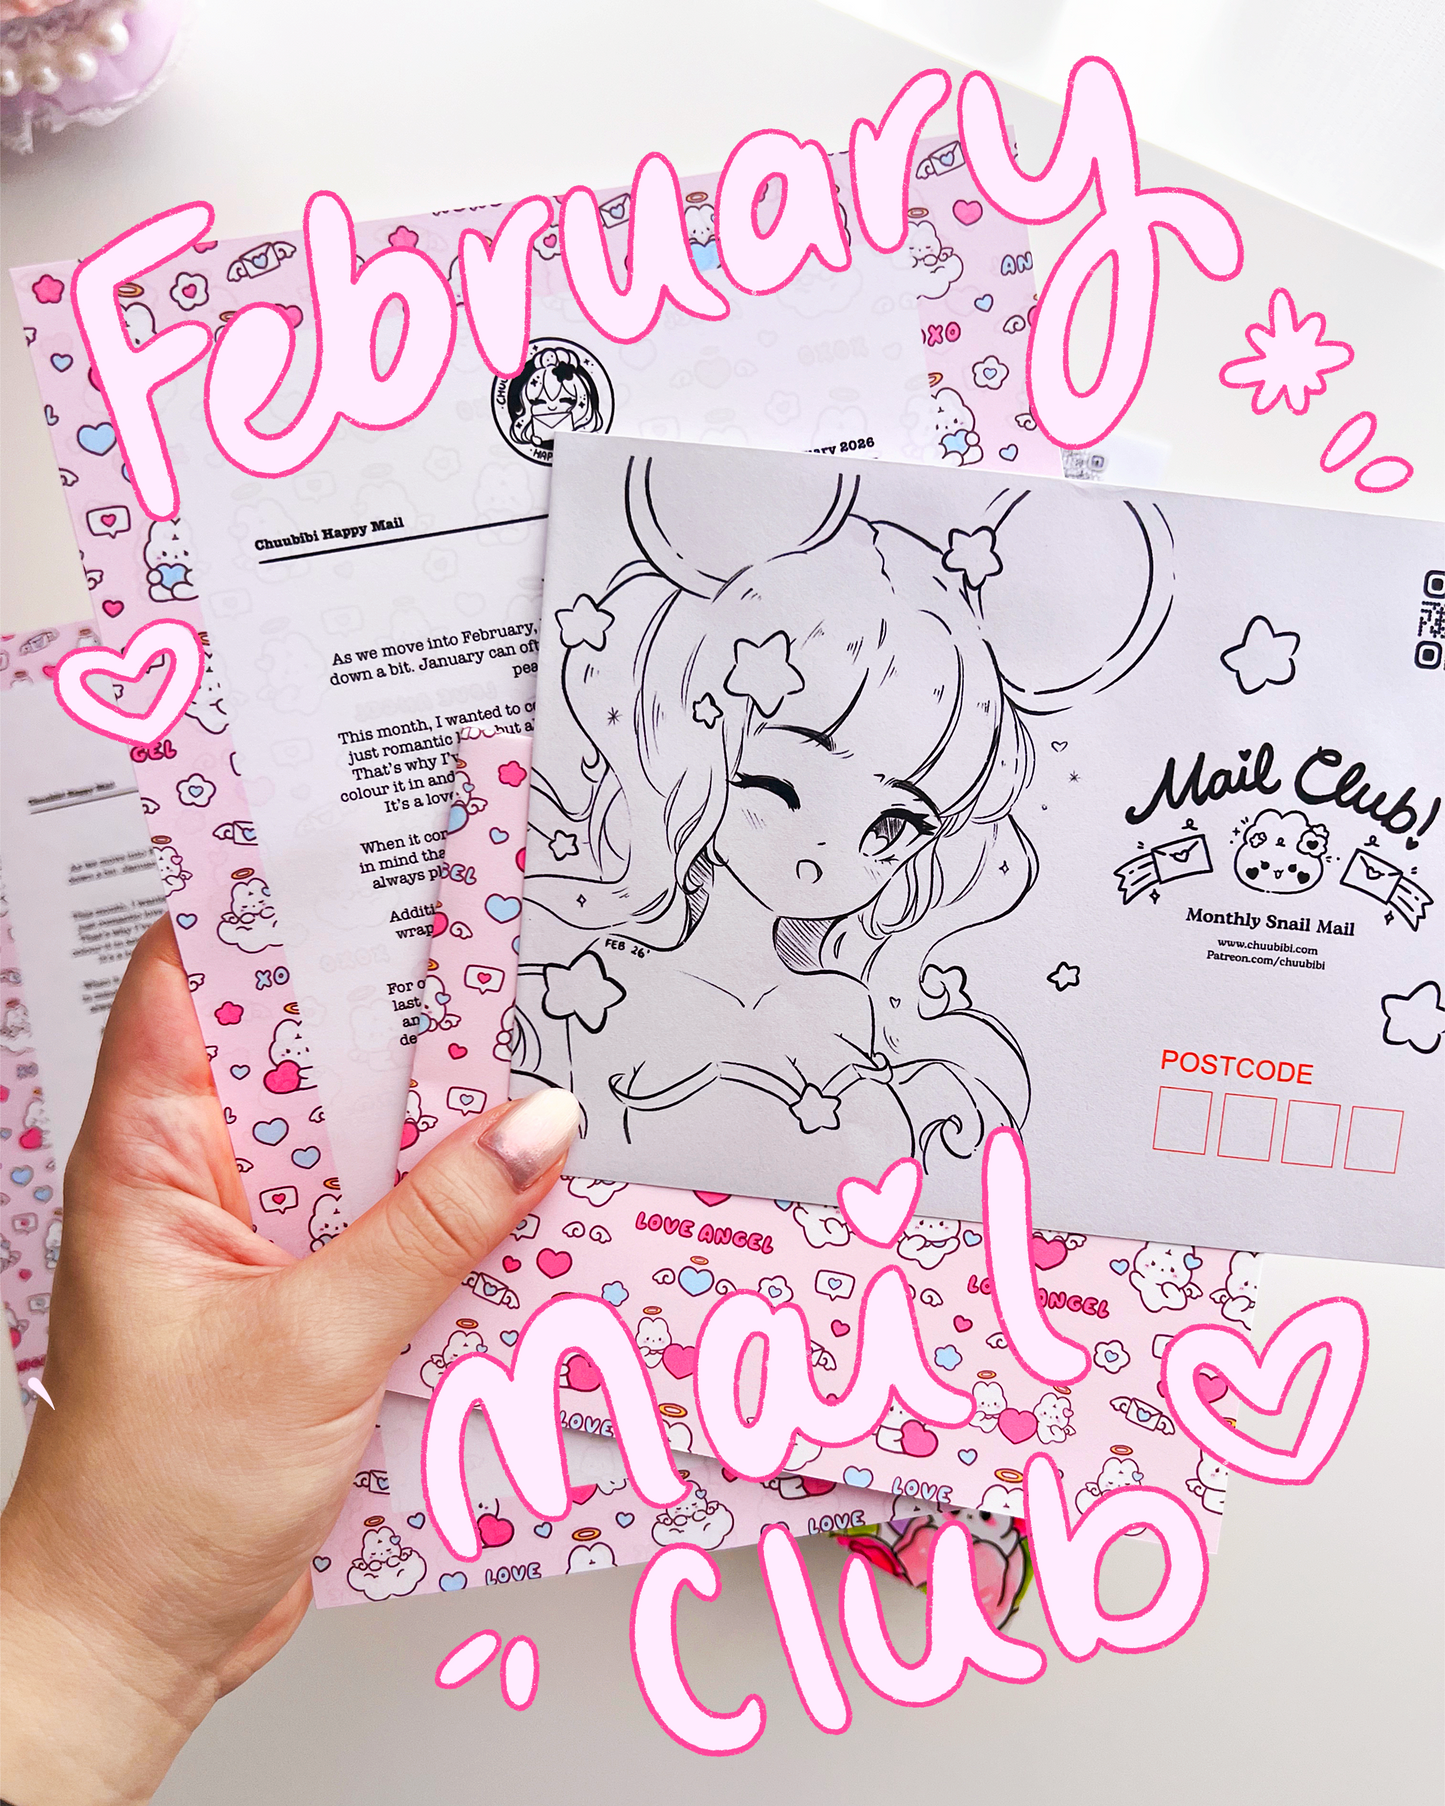 February
ANGEL
XOXO
CHUU
HAP
ary 2026
Chuubibi Happy Mail
As we move into February,
down a bit. January can oft
pea
This month, I wanted to c
just romantic but a
That's why I'v
colour it in and
It's a love
When it co
in mind tha
always pl
Additi
wrap
For o
last
an
de
GEL
XO
FEB 26'
Mail Club!
Monthly Snail Mail
www.chuubibi.com
Patreon.com/chuubibi
POSTCODE
LOVE ANGEL
LOVE ANGEL
LOVE
LOVE
LOVE
LOVE
Mail
Club